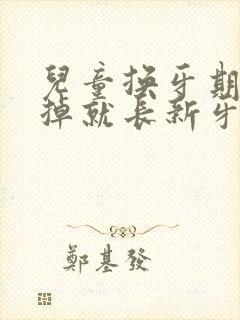 兒童換牙期
掉就長新牙
鄭基發